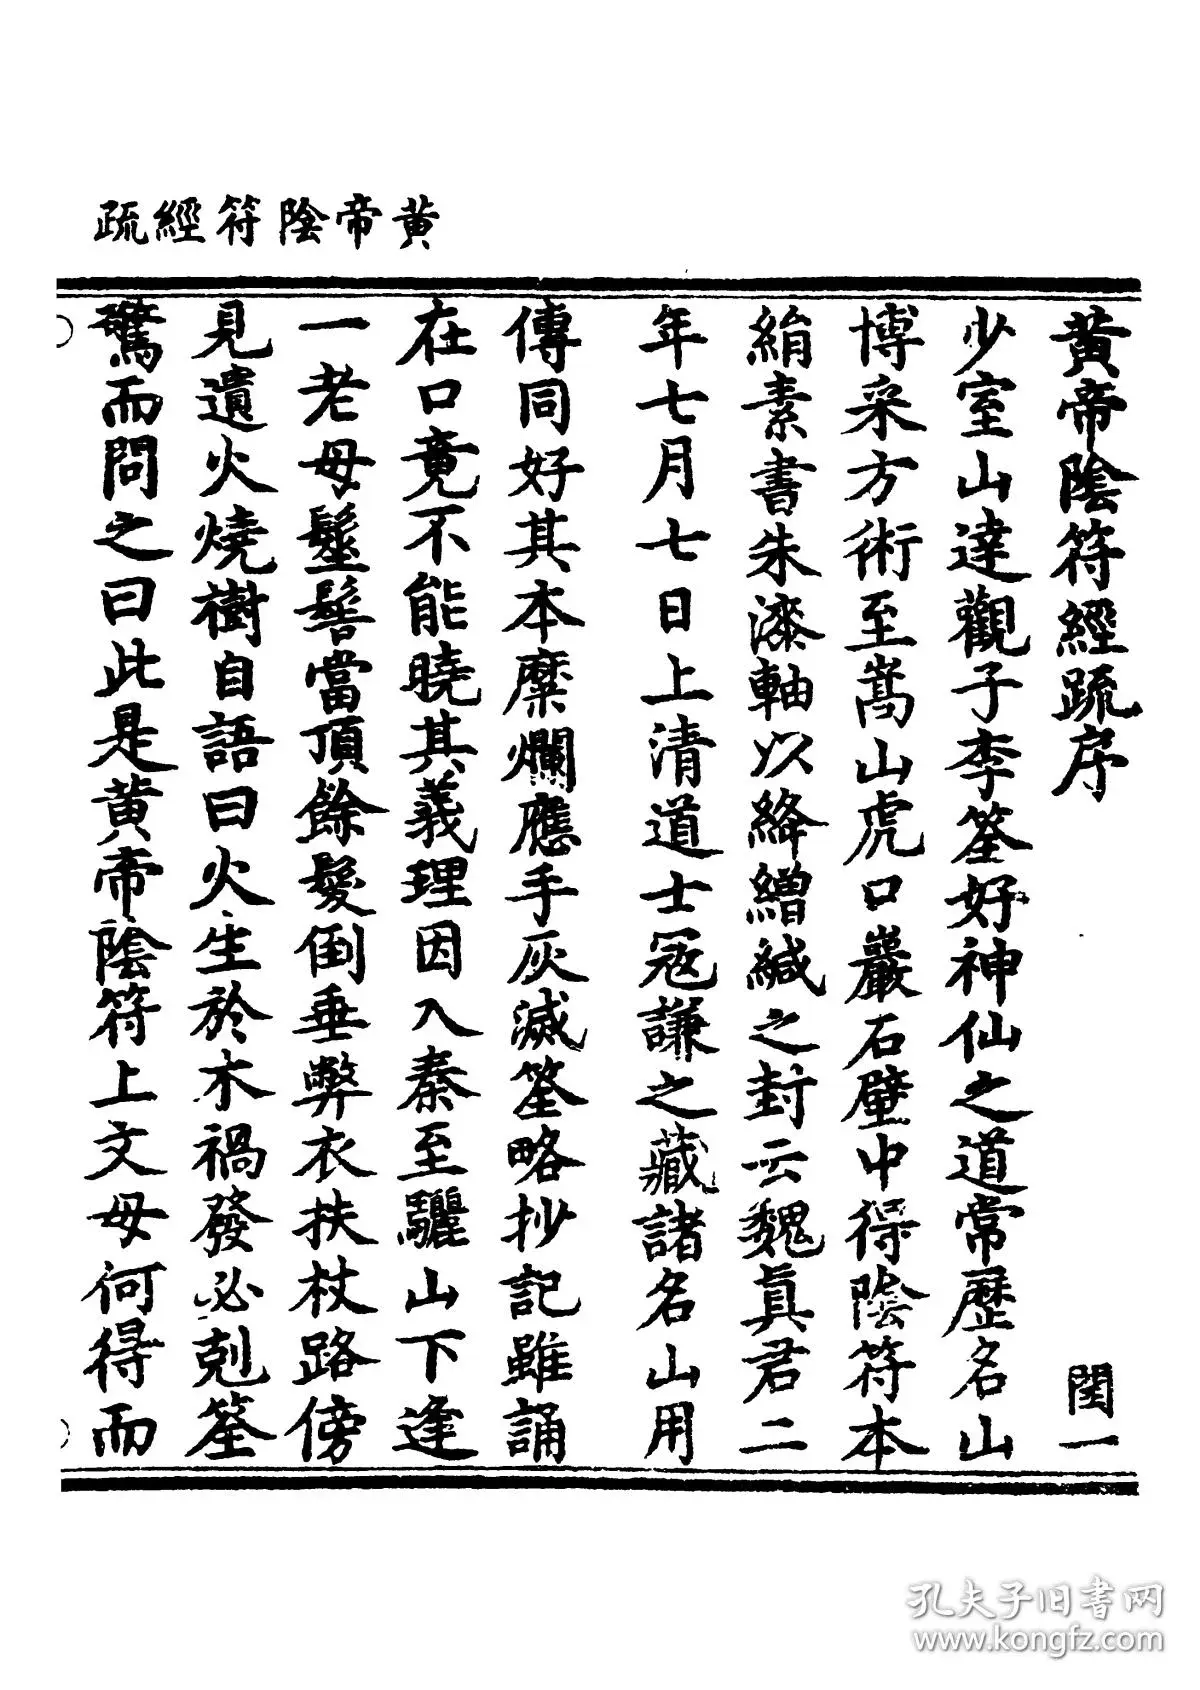 黄帝陰符經疏
黄帝陰符經疏序　閏一
少室山達觀子李筌好神仙之道常歷名山
博采方術至嵩山虎口巖石壁中得陰符本
絹素書朱漆軸以絳繒緘之封云魏真君二
年七月七日上清道士寇謙之藏諸名山用
傳同好其本糜爛應手灰滅筌略抄記雖誦
在口竟不能曉其義理因入秦至驪山下逢
一老母鬢髻當頂餘髮倒垂弊衣扶杖路傍
見遺火燒樹自語曰火生於木禍發必剋筌
驚而問之曰此是黄帝陰符上文母何得而
孔夫子旧書网
www.kongfz.com